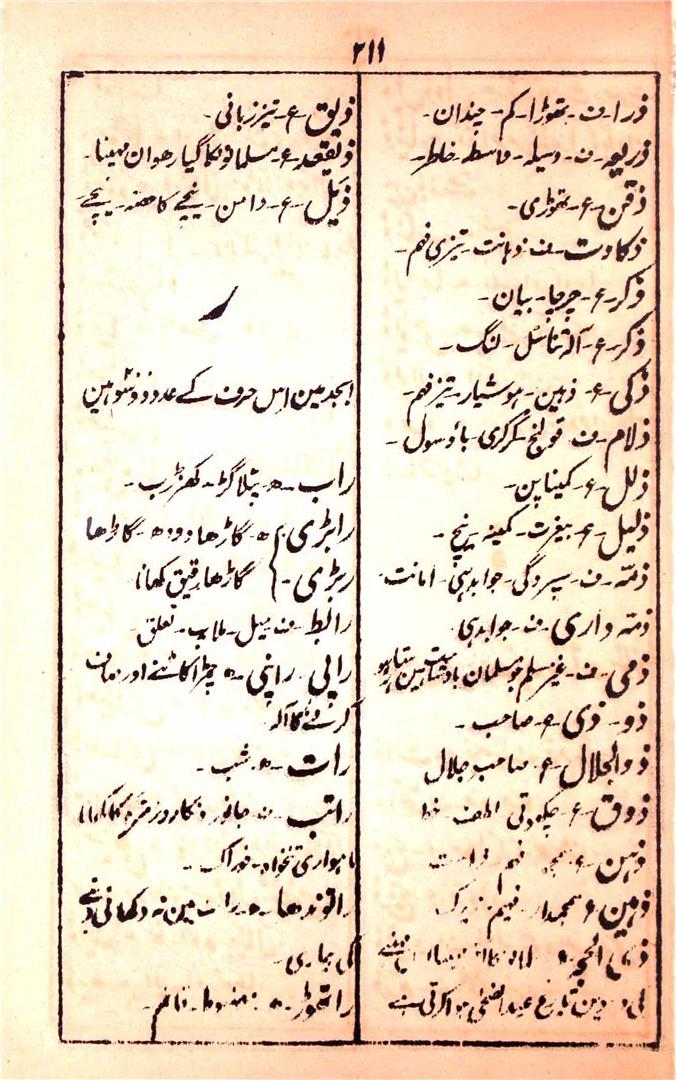 ۲۱۱
ذرا۔ ف۔ تھوڑا۔ کم۔ چندان۔
ذریعہ۔ ف۔ وسیلہ۔ واسطہ۔ خاطر۔
ذقن۔ ع۔ تھوڑی۔
ذکاوت۔ ف۔ ذہانت۔ تیزی فہم۔
ذکر۔ ع۔ چرچا۔ بیان۔
ذکر۔ ع۔ آلہ تناسل۔ لنگ۔
ذکی۔ ع۔ ذہین۔ ہوشیار۔ تیز فہم۔
ذلام۔ ف۔ قولنج۔ کرکری۔ بائو سول۔
ذلل۔ ع۔ کمیناپن۔
ذلیل۔ ع۔ بیغرت۔ کمینہ۔ نیچ۔
ذمہ۔ ف۔ سپردگی۔ جوابدہی۔ امانت۔
ذمہ داری۔ ف۔ جوابدہی۔
ذمی۔ ف۔ غیر مسلم جو مسلمان بادشاہت مین رہتا ہو
ذو۔ ذی۔ ع۔ صاحب۔
ذوالجلال۔ ع۔ صاحب جلال
ذوق۔ ع۔ لطف۔
ذہن۔ ع۔ سمجھ۔ فہم۔ فراست
ذہین۔ ع۔ سمجھدار۔ فہیم۔ زیرک
ذی الحجہ۔ ع
دین تاریخ عید الضحیٰ ہوا کرتی ہے
ذیق۔ ع۔ تیز زبانی۔
ذیقعد۔ ع۔ مسلمانونکا گیارھوان مہینا۔
ذیل۔ ع۔ دامن۔ نیچے کا حصہ۔ نیچے۔
ر
ابجد مین اس حرف کے عدد دو سو ہین
راب۔ ھ۔ پتلا گڑ۔ کھنڑب۔
رابڑی } ھ۔ گاڑھا دودھ۔ گاڑھا
ربڑی۔ } گاڑھا رقیق کھانا
رابط۔ ف۔ میل۔ ملاپ۔ تعلق۔
راپی۔ راپنی۔ ھ۔ چمڑا کاٹنے اور صاف
کرنے کا آلہ
رات۔ ھ۔ شب۔
راتب۔ ف۔ جانورونکا روزمرہ کا کھانا
ماہواری تنخواہ۔ خوراک۔
راتوندھا۔ ھ۔ رات مین نہ دکھائی دینے
کی بیماری۔
راٹھوڑ۔ ھ۔ مضبوط۔ قائم۔